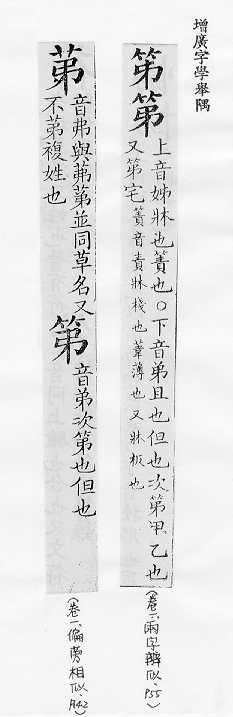 增廣字學舉隅
笫第
上音姊牀也簀也○下音弟且也但也次第甲乙也
又第宅 簀音責牀棧也葦薄也又牀板也
(卷二、兩字辨似、P55)
苐
音弗與茀苐並同草名又
不苐複姓也
第
音弟次第也但也
(卷一、偏旁相似、P142)